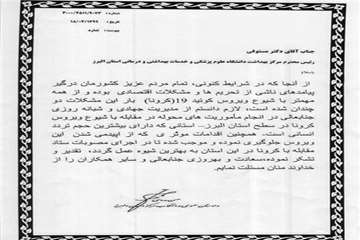 شماره:
تاریخ: ۱۳۹۹/۰۲/۱۸
پیوست:
جناب آقای دکتر مستوفی
رئیس محترم مرکز بهداشت دانشگاه علوم پزشکی و خدمات بهداشتی و درمانی استان البرز
از آنجا که در شرایط کنونی، تمام مردم عزیز کشورمان درگیر
پیامدهای ناشی از تحریم ها و مشکلات اقتصادی بوده و از همه
مهمتر با شیوع ویروس کوئید 19(کرونا) بار این مشکلات دو
چندان شده است، لازم دانستم از مدیریت جهادی و شبانه روزی
جنابعالی در انجام ماموریت های محوله در مقابله با شیوع ویروس
کرونا در سطح استان البرز... استانی که دارای بیشترین حجم تردد
انسانی است. همچنین اقدامات موثر ی که از اپیدمی شدن این
ویروس جلوگیری نموده و موجب شده تا در اجرای مصوبات ستاد
مقابله با کرونا در این استان به بهترین شیوه عمل گردد، تقدیر و
تشکر نموده،سعادت و بهروزی جنابعالی و سایر همکاران را از
خداوند منان مسئلت نمایم.